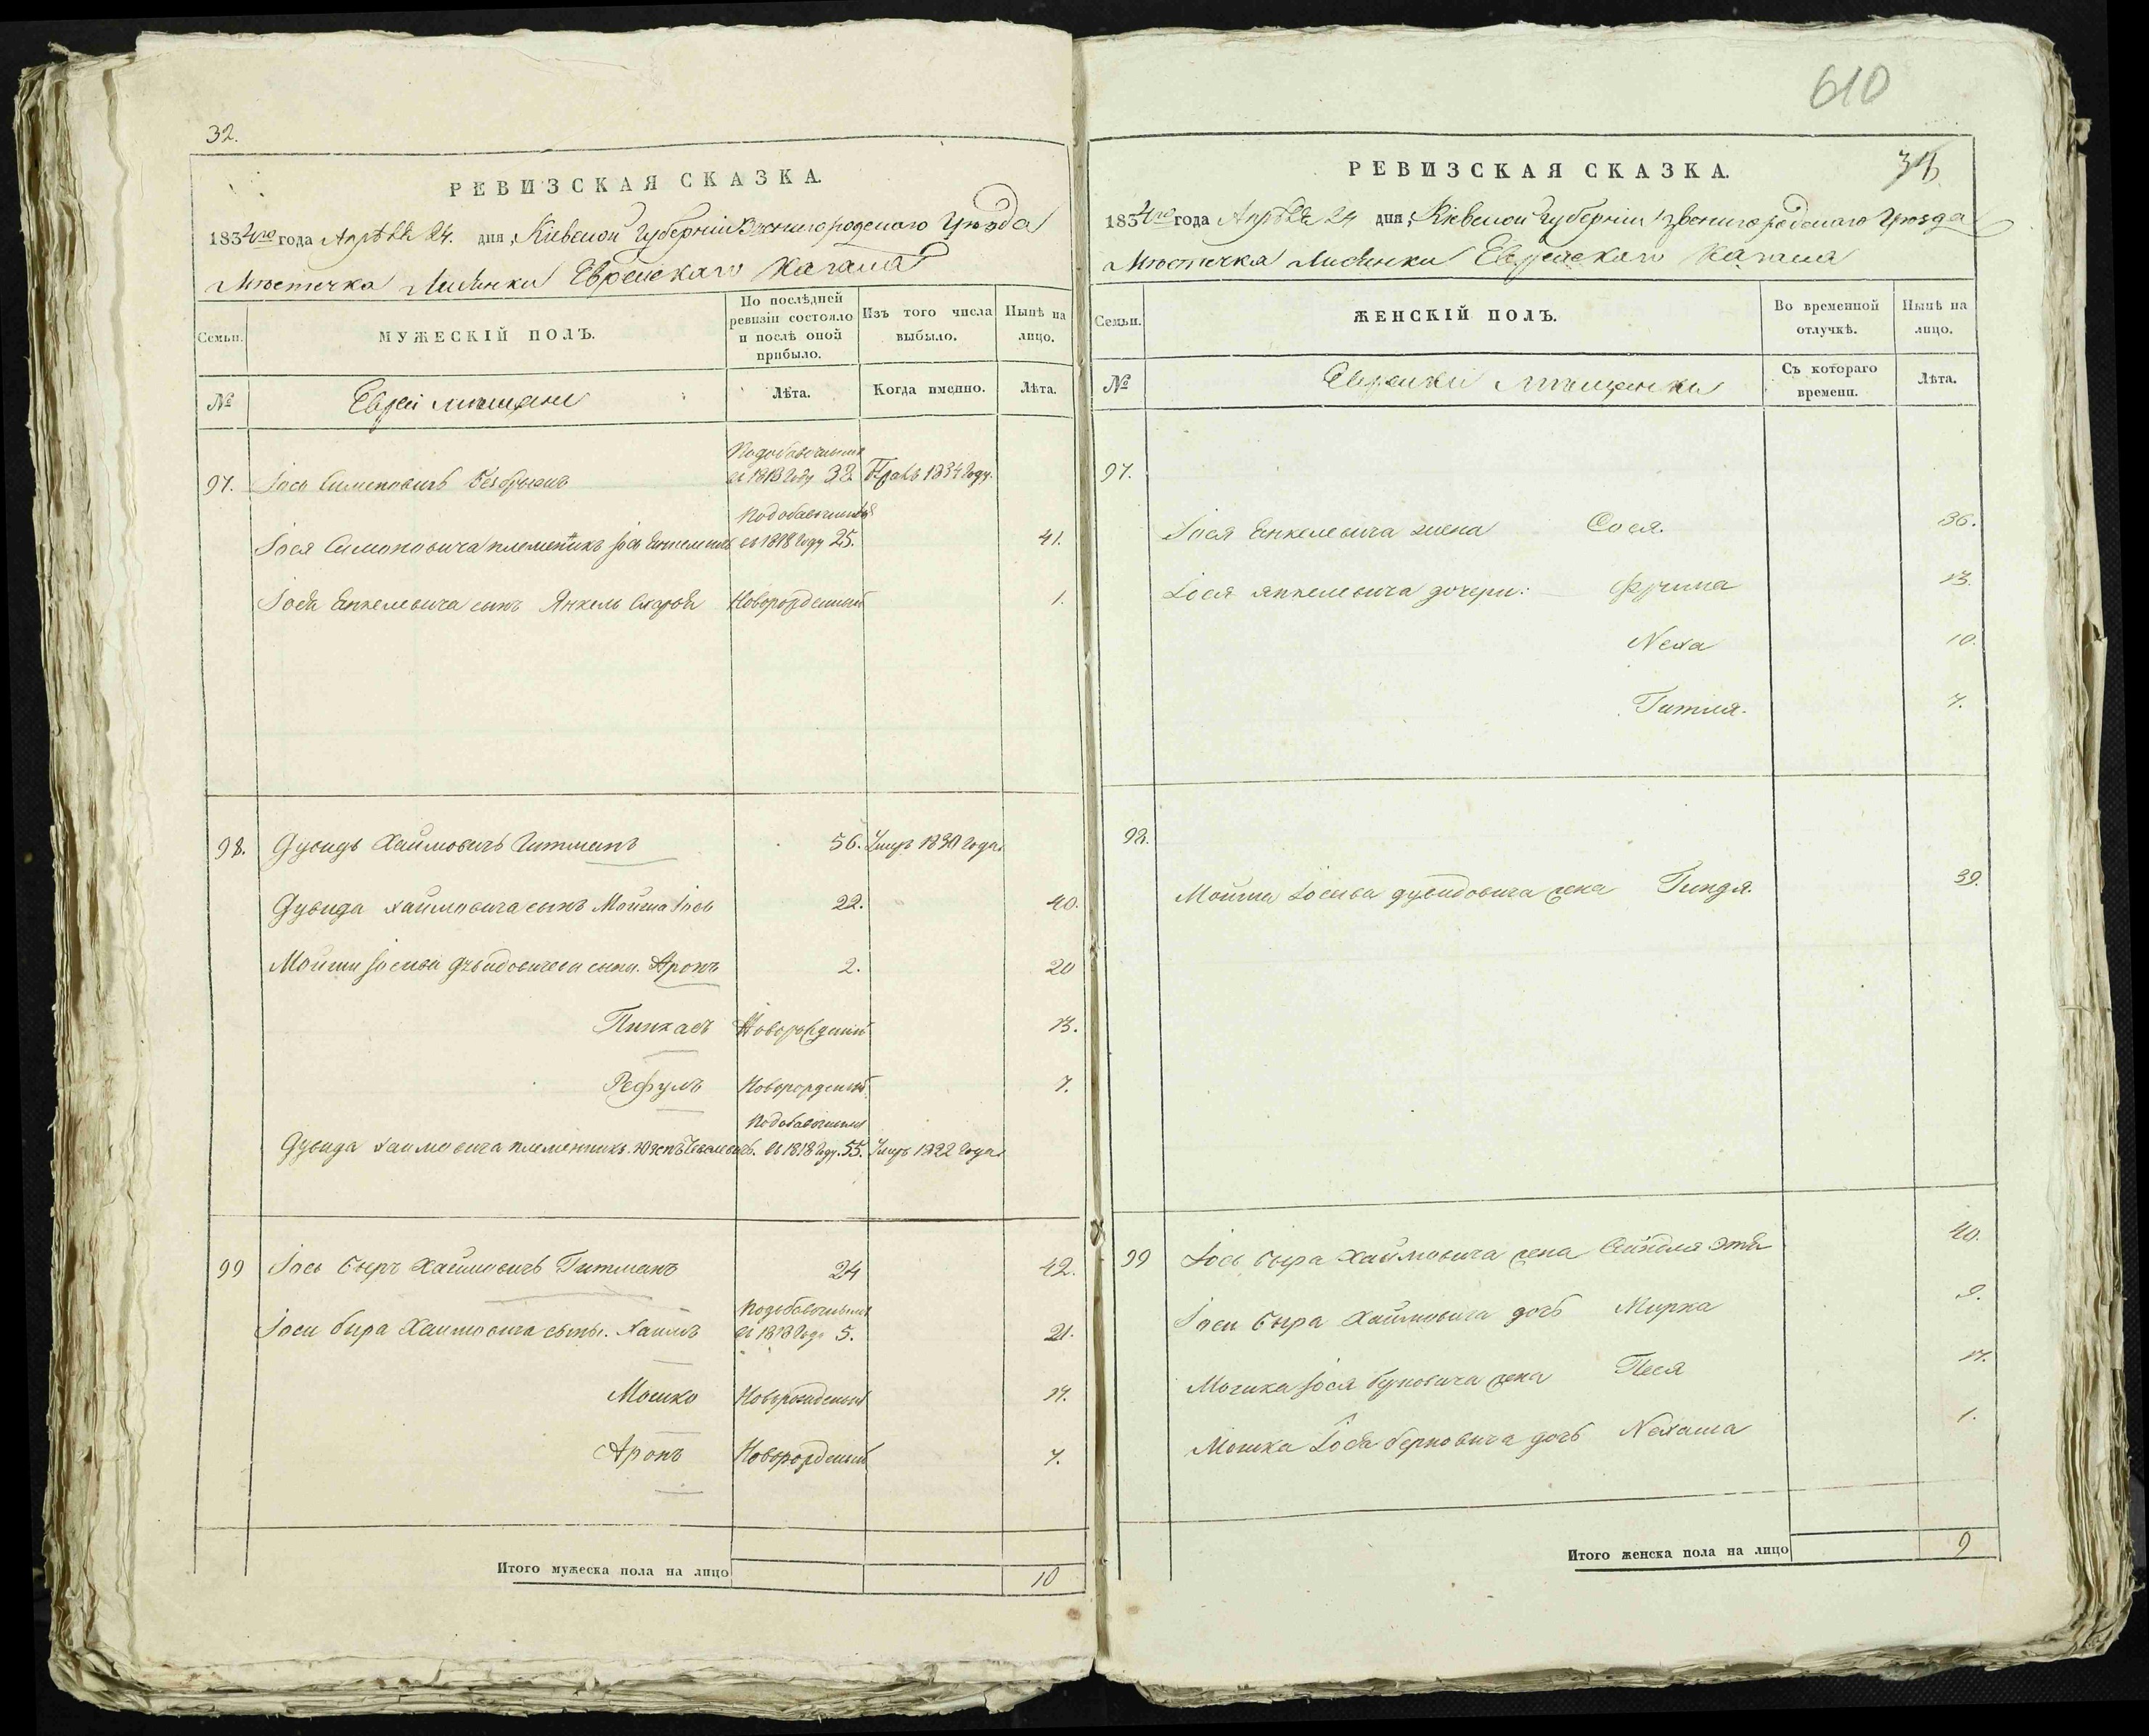 32.
РЕВИЗСКАЯ СКАЗКА.
1834го года Апрѣля 24. дня, Кіевской Губерніи Звенигородского Уѣзда
Мѣстечка Лисянки Еврейскаго Кагала
Семьи.
МУЖЕСКІЙ ПОЛЪ.
По послѣдней ревизіи состояло и послѣ оной прибыло.
Изъ того числа выбыло.
Нынѣ на лицо.
№
Евреи мѣщане
Лѣта.
Когда именно.
Лѣта.
Подобавочныхъ
97. Іось Симоновичъ въ 1818 Году 32 1834 Году.
Подобавочныхъ
Іося Симоновича племенникъ Іось Янкелевичъ въ 1818 Году 25. 41.
Іося Янкелевича сынъ Янкель Новорожденный 1.
98. Дувидъ Хаимовичъ Гитманъ 56. Умръ 1830 Года
Дувида Хаимовича сынъ Мойша Іось 22. 40.
Мойши Іосива Дувидовича сыны. Аронъ 2. 20
Пинхасъ Новорожденный 13.
Рефулъ Новорожденный 7.
Подобавочныхъ
Дувида Хаимовича племенникъ въ 1818 Году. 55. Умръ 1822 Года
99 Іось Беръ Хаимовичъ Гитманъ 24 42.
Подобавочныхъ
Іоси Бера Хаимовича сыны. Хаимъ въ 1818 Году 5. 21.
Мошко Новорожденный 17.
Аронъ Новорожденный 7.
Итого мужеска пола на лицо 10
610
РЕВИЗСКАЯ СКАЗКА.
1834го года Апрѣля 24 дня, Кіевской Губерніи Звенигородского Уѣзда
Мѣстечка Лисянки Еврейскаго Кагала
Семьи.
ЖЕНСКІЙ ПОЛЪ.
Во временной отлучкѣ.
Нынѣ на лицо.
№
Еврейки мѣщанки
Съ котораго времени.
Лѣта.
97.
Іося Янкелевича жена Сося. 36.
Іося Янкелевича дочери: Фрума 13.
Неха 10.
Гитля. 7.
98.
Мойша Іосива Дувидовича жена Гиндя. 39.
99 Іось Бера Хаимовича жена Этя 40.
Іоси Бера Хаимовича дочь Мирка 9.
Мошка Іося Берковича жена Песя 17.
Мошка Іося Берковича дочь Нехама 1.
Итого женска пола на лицо 9